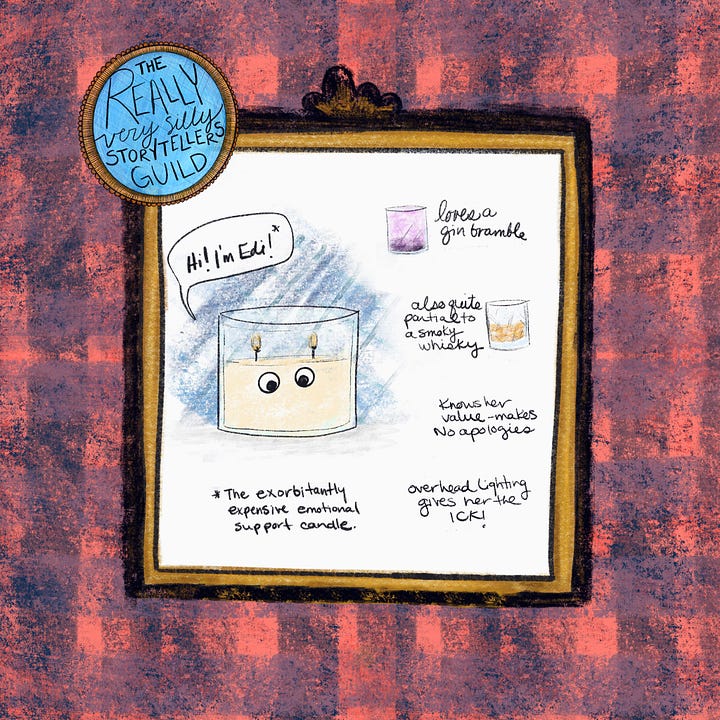 THE
REALLY
very silly
STORYTELLERS
GUILD
Hi! I'm Edi!*
loves a
gin bramble
also quite
partial to
a smoky
whisky
Knows her
value - makes
No apologies
* The exorbitantly
expensive emotional
support candle.
overhead lighting
gives her the
ICK!